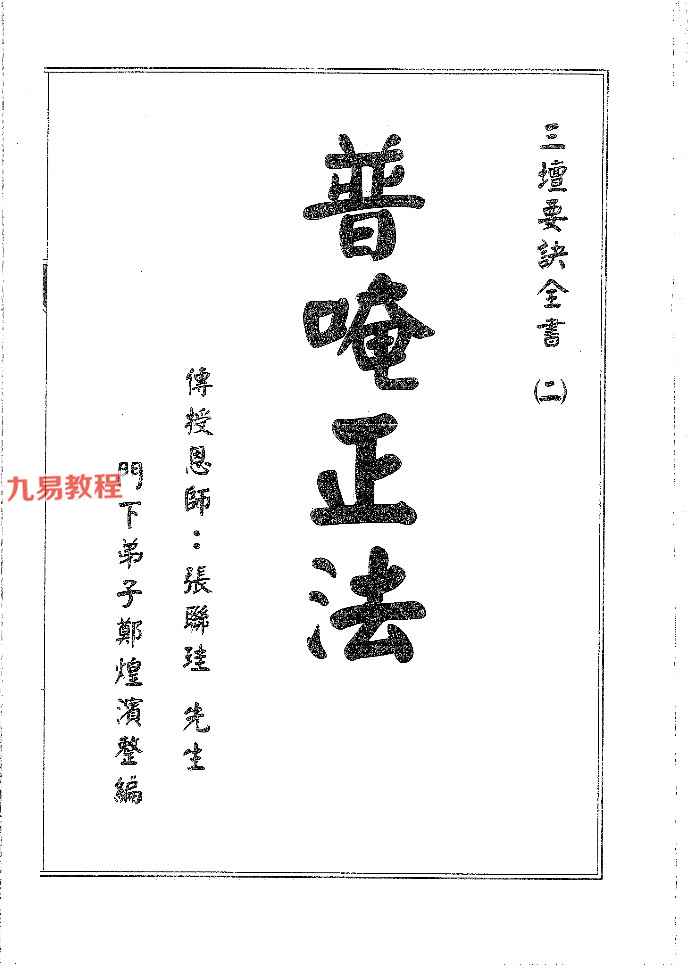 三壇要訣全書(二)
普唵正法
傳授恩師：張聯珪 先生
門下弟子鄭煌濱整編
九易教程